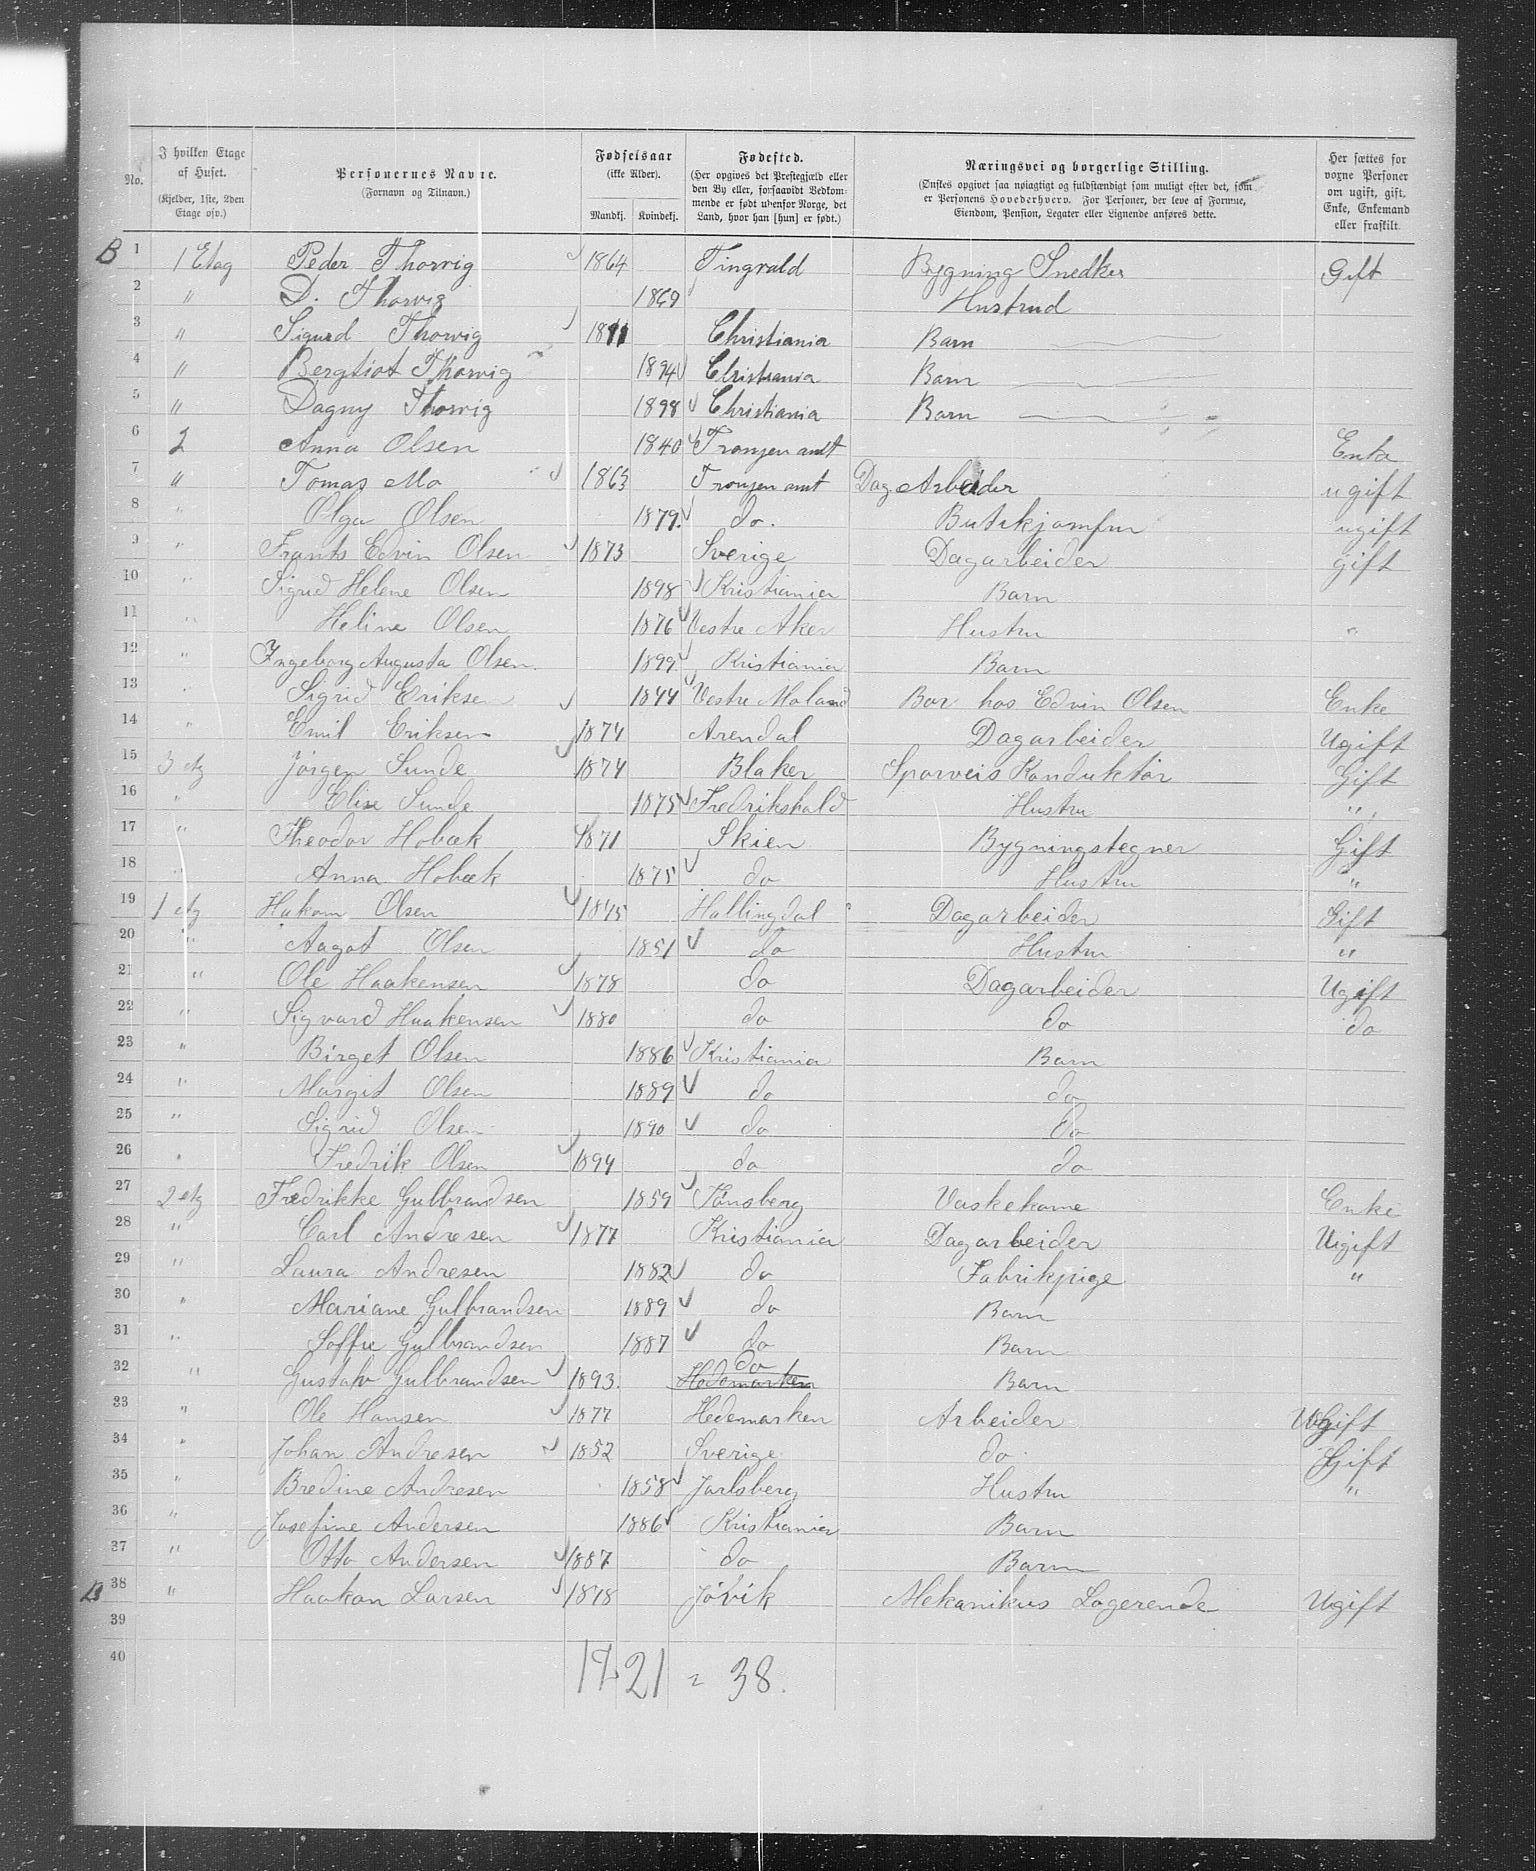 No.
I hvilken Etage af Huset. (Kjelder, 1ste, 2den Etage osv.)
Personernes Navne. (Fornavn og Tilnavn.)
Fødselsaar (ikke Alder). Mandkj. Kvindekj.
Fødested. (Her opgives det Prestegjæld eller den By eller, forsaavidt Vedkommende er født udenfor Norge, det Land, hvor han [hun] er født.)
Næringsvei og borgerlige Stilling. (Ønskes opgivet saa nøiagtigt og fuldstændigt som muligt efter det, som er Personens Hovederhverv. For Personer, der leve af Formue, Eiendom, Pension, Legater eller Lignende anføres dette.
Her sættes for voxne Personer om ugift, gift, Enke, Enkemand eller fraskilt.
B 1 1 Etag Peder Thorvig 1864 Tingvald Bygning Snedker Gift
2 " D. Thorvig 1869 Hustrud
3 " Sigurd Thorvig 1891 Christiania Barn
4 " Bergliot Thorvig 1894 Christiania Barn
5 " Dagny Thorvig 1898 Christiania Barn
6 2 Anna Olsen 1840 Tromsen amt Enke
7 " Tomas Mo 1863 Tromsen amt Dag Arbeider ugift
8 " Olga Olsen 1879. do. Butikjomfru ugift
9 " Frants Edvin Olsen 1873 Sverige Dagarbeider gift
10 " Sigrid Helene Olsen 1898 Kristiania Barn
11 " Heline Olsen 1876 Vestre Aker Hustru "
12 " Ingeborg Augusta Olsen. 1899 Kristiania Barn
13 " Sigrid Eriksen 1844 Vestre Moland Bor hos Edvin Olsen Enke
14 " Emil Eriksen 1874 Arendal Dagarbeider Ugift
15 3 etg Jörgen Sunde 1874 Blaker Sporveis Konduktör Gift
16 " Elise Sunde 1875 Fredrikshald Hustru "
17 " Theodor Hobæk 1871 Skien Bygningstegner Gift
18 " Anna Hobæk 1875 do Hustru "
19 1 etg Hakon Olsen 1845 Hallingdal Dagarbeider Gift
20 " Aagot Olsen 1851 do Hustru "
21 " Ole Haakensen 1878 do Dagarbeider Ugift
22 " Sigvard Haakensen 1880 do do do
23 " Birget Olsen 1886 Kristiania Barn
24 " Margit Olsen 1889 do do
25 " Sigrid Olsen 1890 do do
26 " Fredrik Olsen 1894 do do
27 2 etg Fredrikke Gulbrandsen 1859 Tönsberg Vaskekone Enke
28 " Carl Andresen 1877 Kristiania Dagarbeider Ugift
29 " Laura Andresen 1882 do Fabrikpige "
30 " Mariane Gulbrandsen 1889 do Barn
31 " Soffie Gulbrandsen 1887 do Barn
32 " Gustav Gulbrandsen 1893. do Hedemarken Barn
33 " Ole Hansen 1877 Hedemarken Arbeider Ugift
34 " Johan Andresen 1852 Sverige do Gift
35 " Bredine Andresen 1858 Jarlsberg Hustru "
36 " Josefine Andersen 1886 Kristiania Barn
37 " Otto Andersen 1887 do Barn
B 38 " Haakon Larsen 1878 Jövik Mekanikus Logerende Ugift
39
40
17 21 = 38.